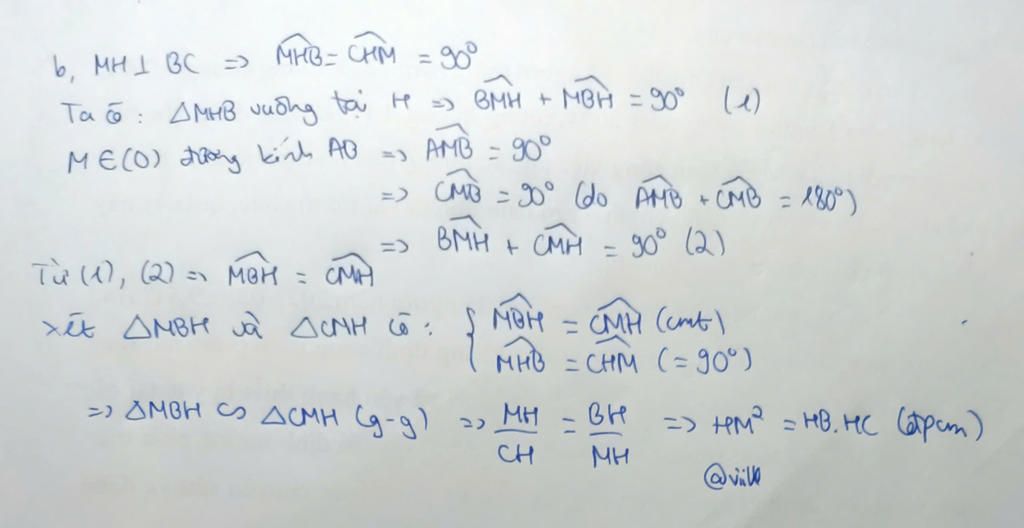 b, MH ⊥ BC => \widehat{MHB} = \widehat{CHM} = 90°
Ta có : △MHB vuông tại H => \widehat{BMH} + \widehat{MBH} = 90° (1)
M ∈ (O) đường kính AB => \widehat{AMB} = 90°
=> \widehat{CMB} = 90° (do \widehat{AMB} + \widehat{CMB} = 180°)
=> \widehat{BMH} + \widehat{CMH} = 90° (2)
Từ (1), (2) => \widehat{MBH} = \widehat{CMH}
Xét △MBH và △CMH có : { \widehat{MBH} = \widehat{CMH} (cmt)
\widehat{MHB} = \widehat{CHM} (= 90°)
=> △MBH ∽ △CMH (g-g) => MH/CH = BH/MH => HM² = HB.HC (đpcm)